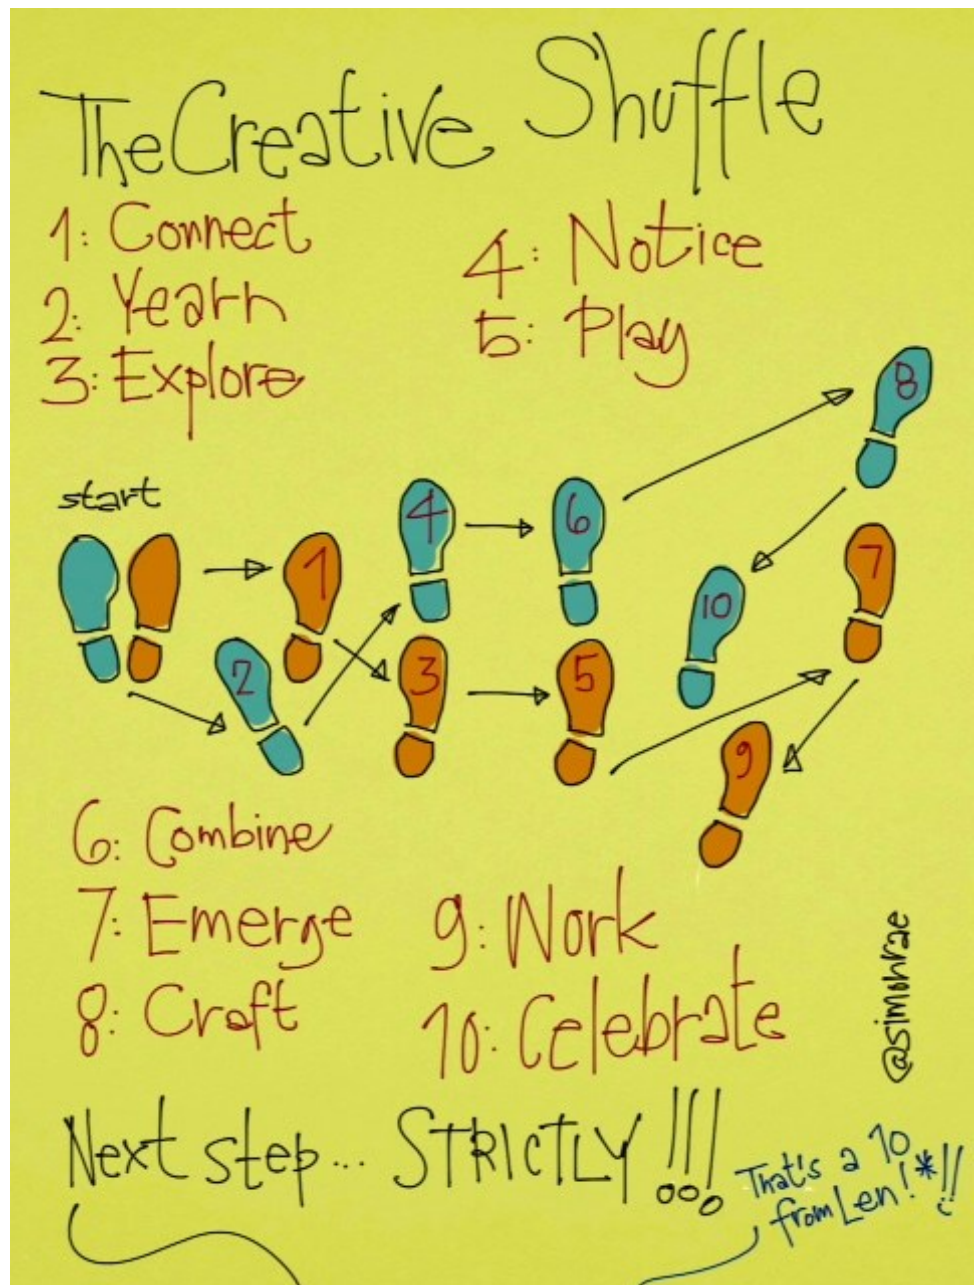 The Creative Shuffle
1: Connect
2: Yearn
3: Explore
4: Notice
5: Play
start
1
2
3
4
5
6
7
8
9
10
6: Combine
7: Emerge
8: Craft
9: Work
10: Celebrate
@simonrae
Next step... STRICTLY!!!
That's a 10
from Len!*!!